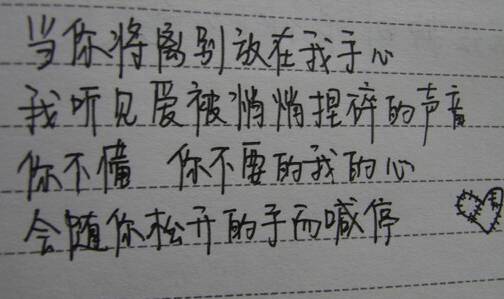 当你将离别放在我手心
我听见爱被悄悄捏碎的声音
你不懂 你不要的我的心
会随你松开的手而喊停